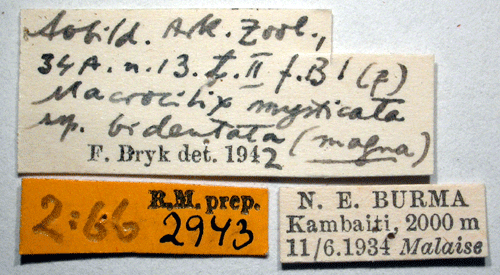 Aobild. Ark. Zool.,
34A. n. 13. t. II f. B1 (p)
Macrocilix mysticata
sp. bidentata (magna)
F. Bryk det. 1942
2:66
R.M. prep.
2943
N. E. BURMA
Kambaiti, 2000 m
11/6.1934 Malaise